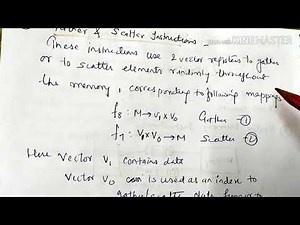 Gather & Scatter Instructions -
These instructions use 2 vector registers to gather
or to scatter elements randomly throughout
the memory, corresponding to following mappings
f₈ : M → V₁ × V₀ Gather ①
f₇ : V₁ × V₀ → M Scatter ②
Here Vector V₁ contains data
Vector V₀ is used as an index to
data
KINEMASTER